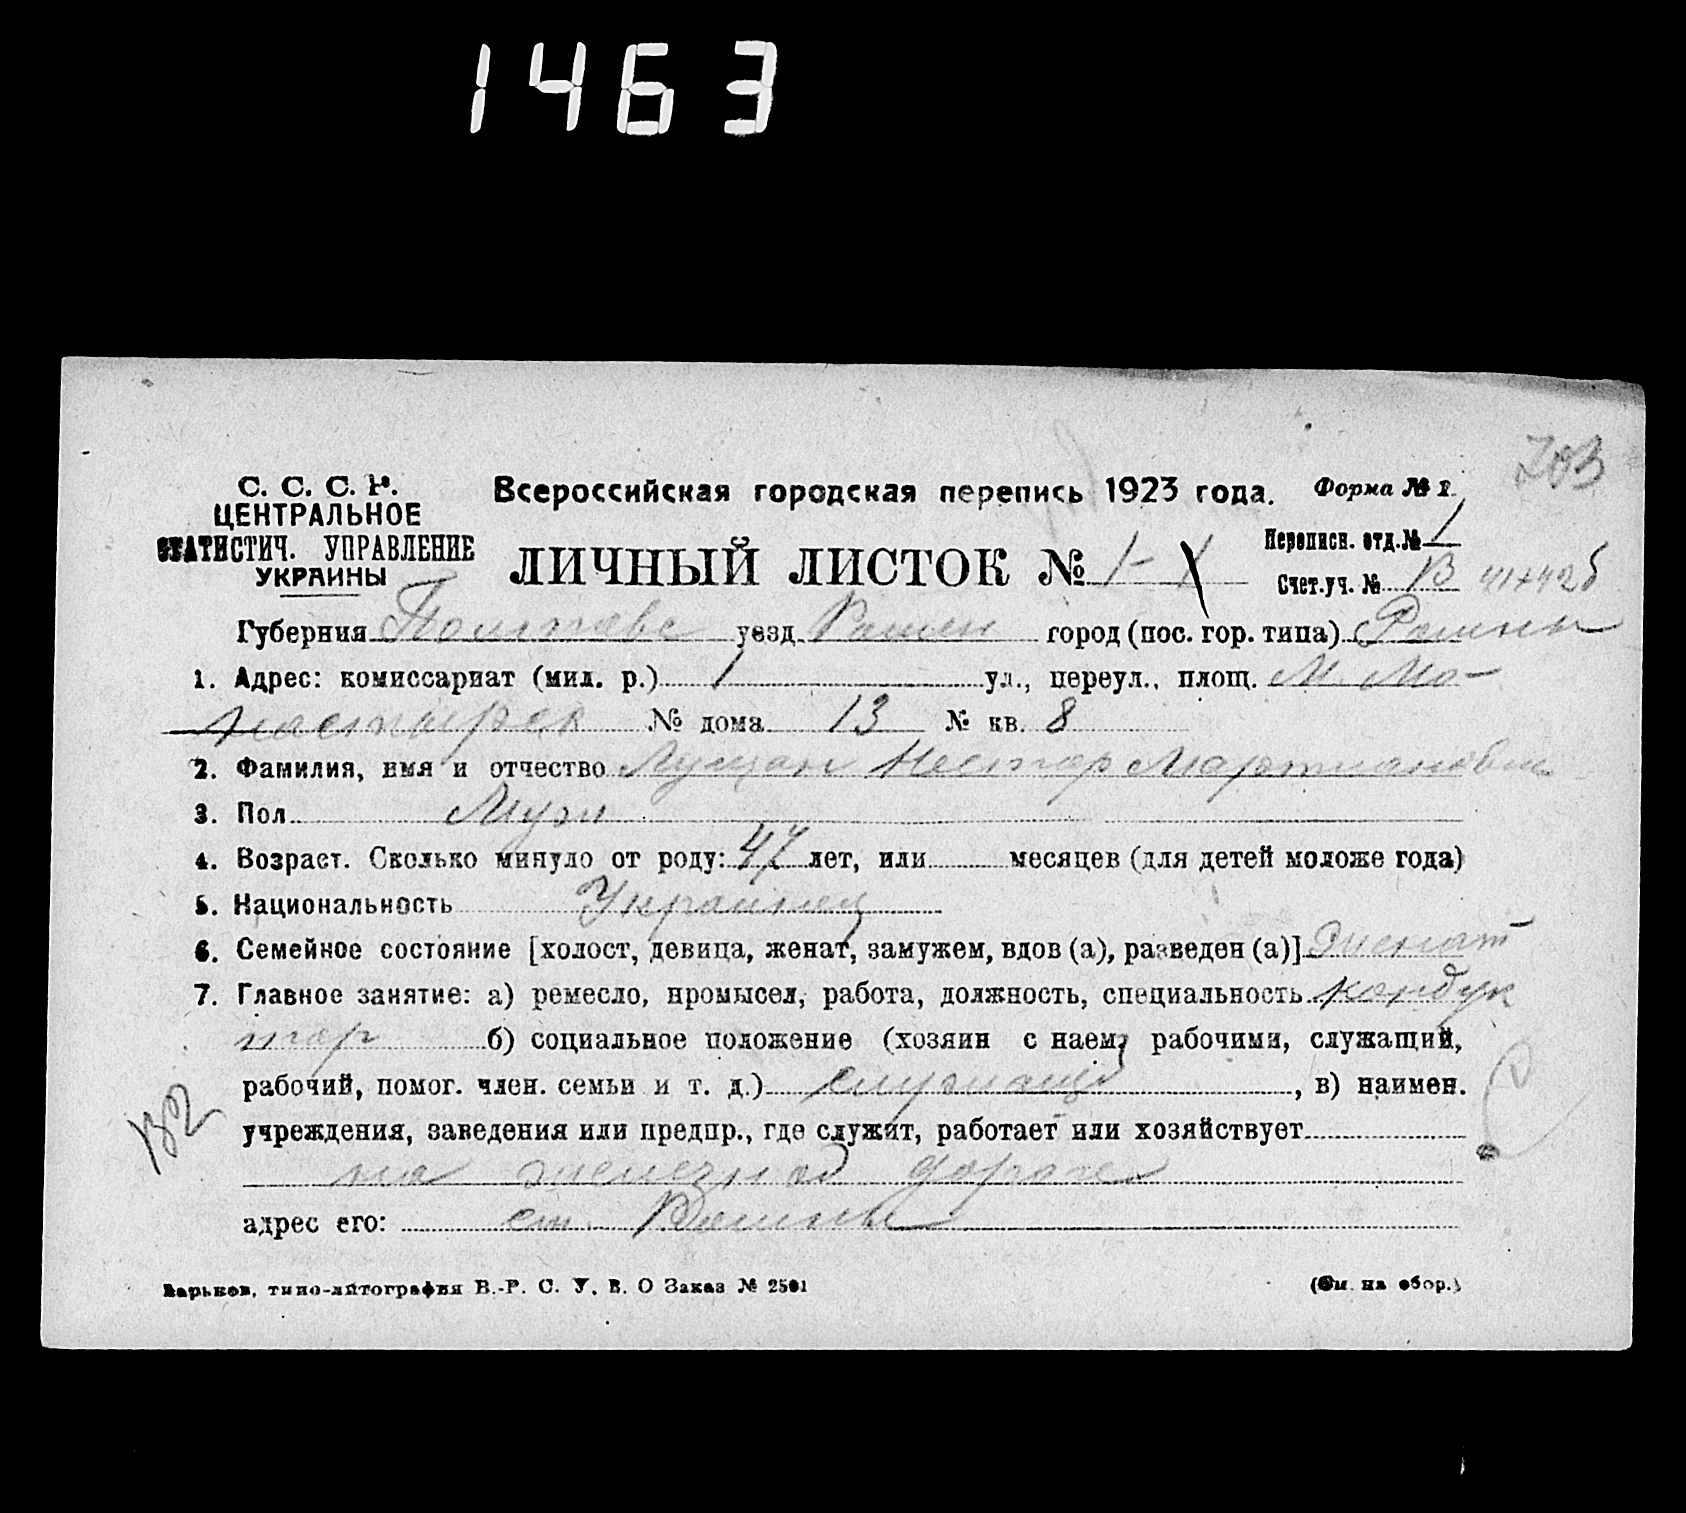 1463
703
С. С. С. Р.
ЦЕНТРАЛЬНОЕ
СТАТИСТИЧ. УПРАВЛЕНИЕ
УКРАИНЫ
Всероссийская городская перепись 1923 года. Форма № 1.
ЛИЧНЫЙ ЛИСТОК № 1-
Переписн. отд. № 1
Счет. уч. № 13
Губерния Полтавс уезд Ромен город (пос. гор. типа) Ромны
1. Адрес: комиссариат (мил. р.) 1 ул., переул., площ. М. Мо-
настырск № дома 13 № кв. 8
2. Фамилия, имя и отчество Лущан Нестор Мартианович
3. Пол Муж
4. Возраст. Сколько минуло от роду: 47 лет, или месяцев (для детей моложе года)
5. Национальность Украинец
6. Семейное состояние [холост, девица, женат, замужем, вдов (а), разведен (а)] Женат
7. Главное занятие: а) ремесло, промысел, работа, должность, специальность кондук
тор б) социальное положение (хозяин с наем. рабочими, служащий,
рабочий, помог. член. семьи и т. д.) служащий, в) наимен.
учреждения, заведения или предпр., где служит, работает или хозяйствует
на железной дороге
адрес его: ст. Ромны
132
Харьков, типо-литография В.-Р. С. У. В. О Заказ № 2501
(См. на обор.)